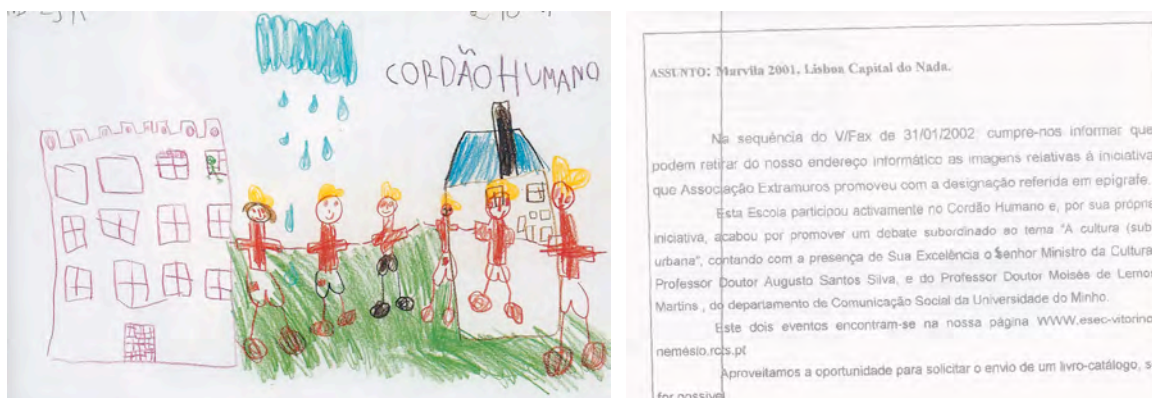 CORDÃO HUMANO
ASSUNTO: Marvila 2001. Lisboa Capital do Nada.
Na sequência do V/Fax de 31/01/2002 cumpre-nos informar que
podem retirar do nosso endereço informático as imagens relativas á iniciativa
que Associação Extramuros promoveu com a designação referida em epígrafe.
Esta Escola participou activamente no Cordão Humano e, por sua própria
iniciativa, acabou por promover um debate subordinado ao tema "A cultura (sub
urbana", contando com a presença de Sua Excelência o Senhor Ministro da Cultura
Professor Doutor Augusto Santos Silva, e do Professor Doutor Moisés de Lemos
Martins , do departamento de Comunicação Social da Universidade do Minho.
Este dois eventos encontram-se na nossa página WWW.esec-vitorino
nemésio.rcts.pt
Aproveitamos a oportunidade para solicitar o envio de um livro-catálogo, s
for possível